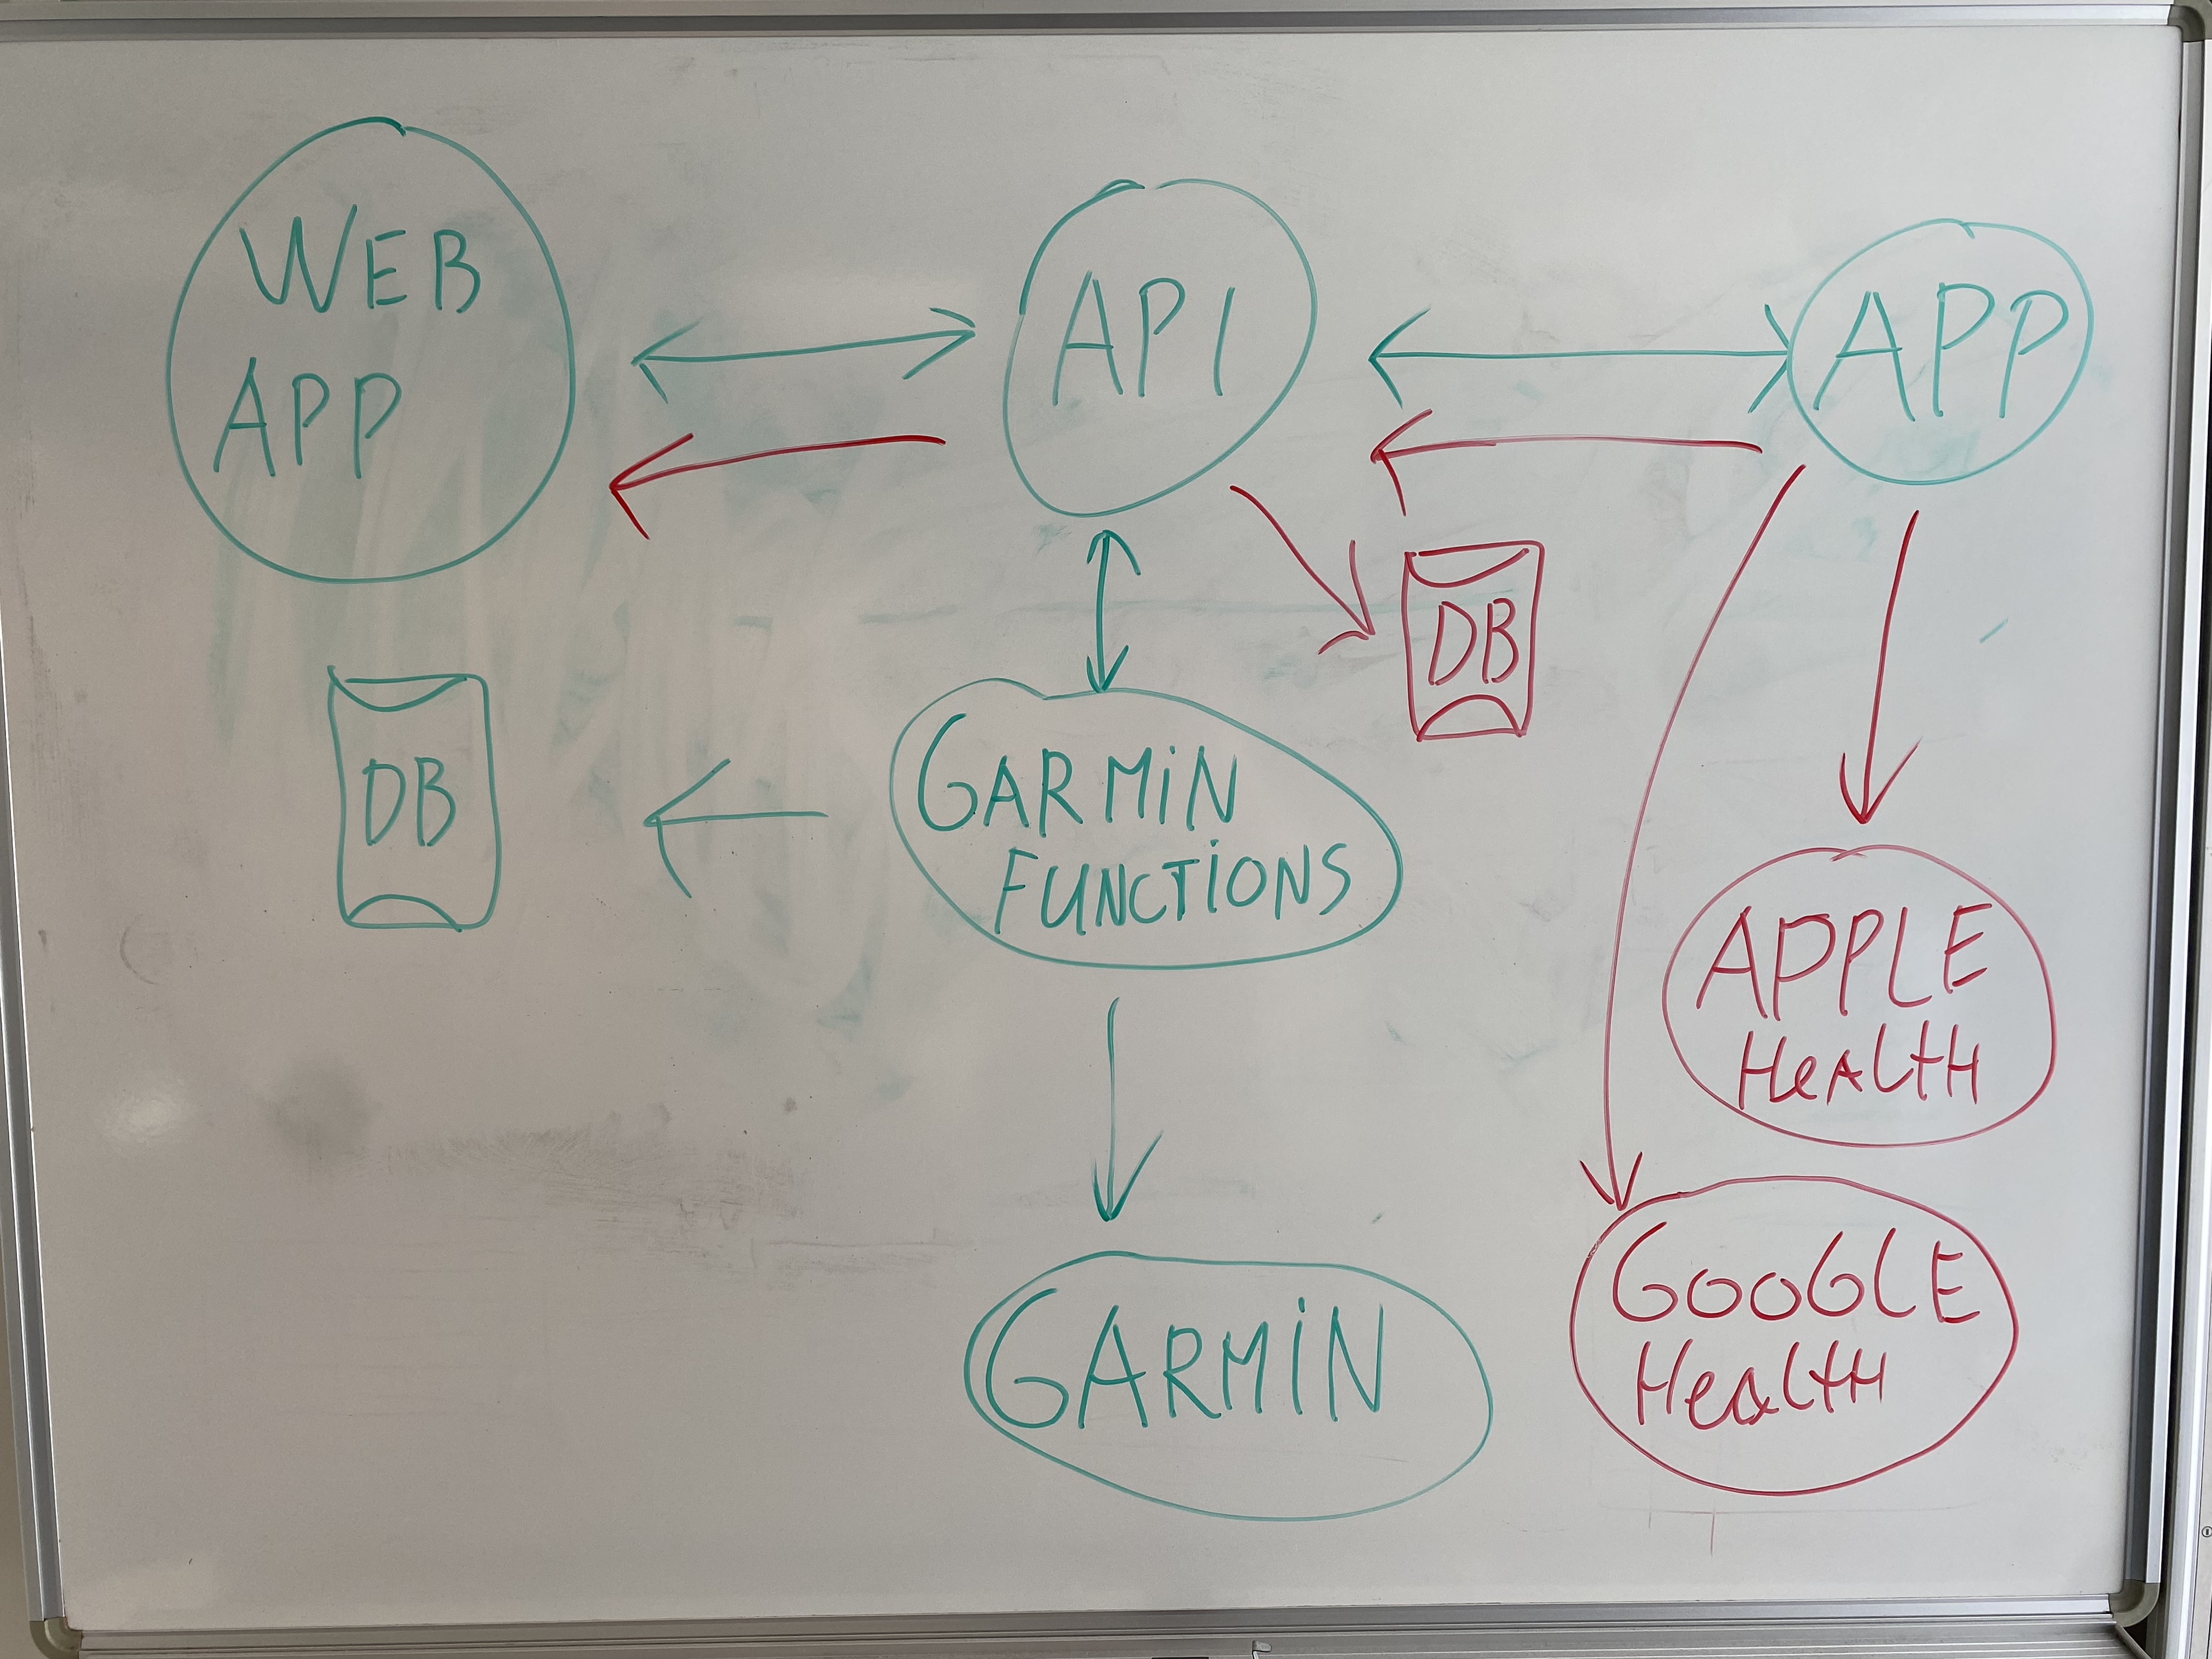 WEB
APP
API
APP
DB
DB
GARMiN
FUNCTiONS
APPLE
HeALtH
GARMiN
GOOGLE
HealtH